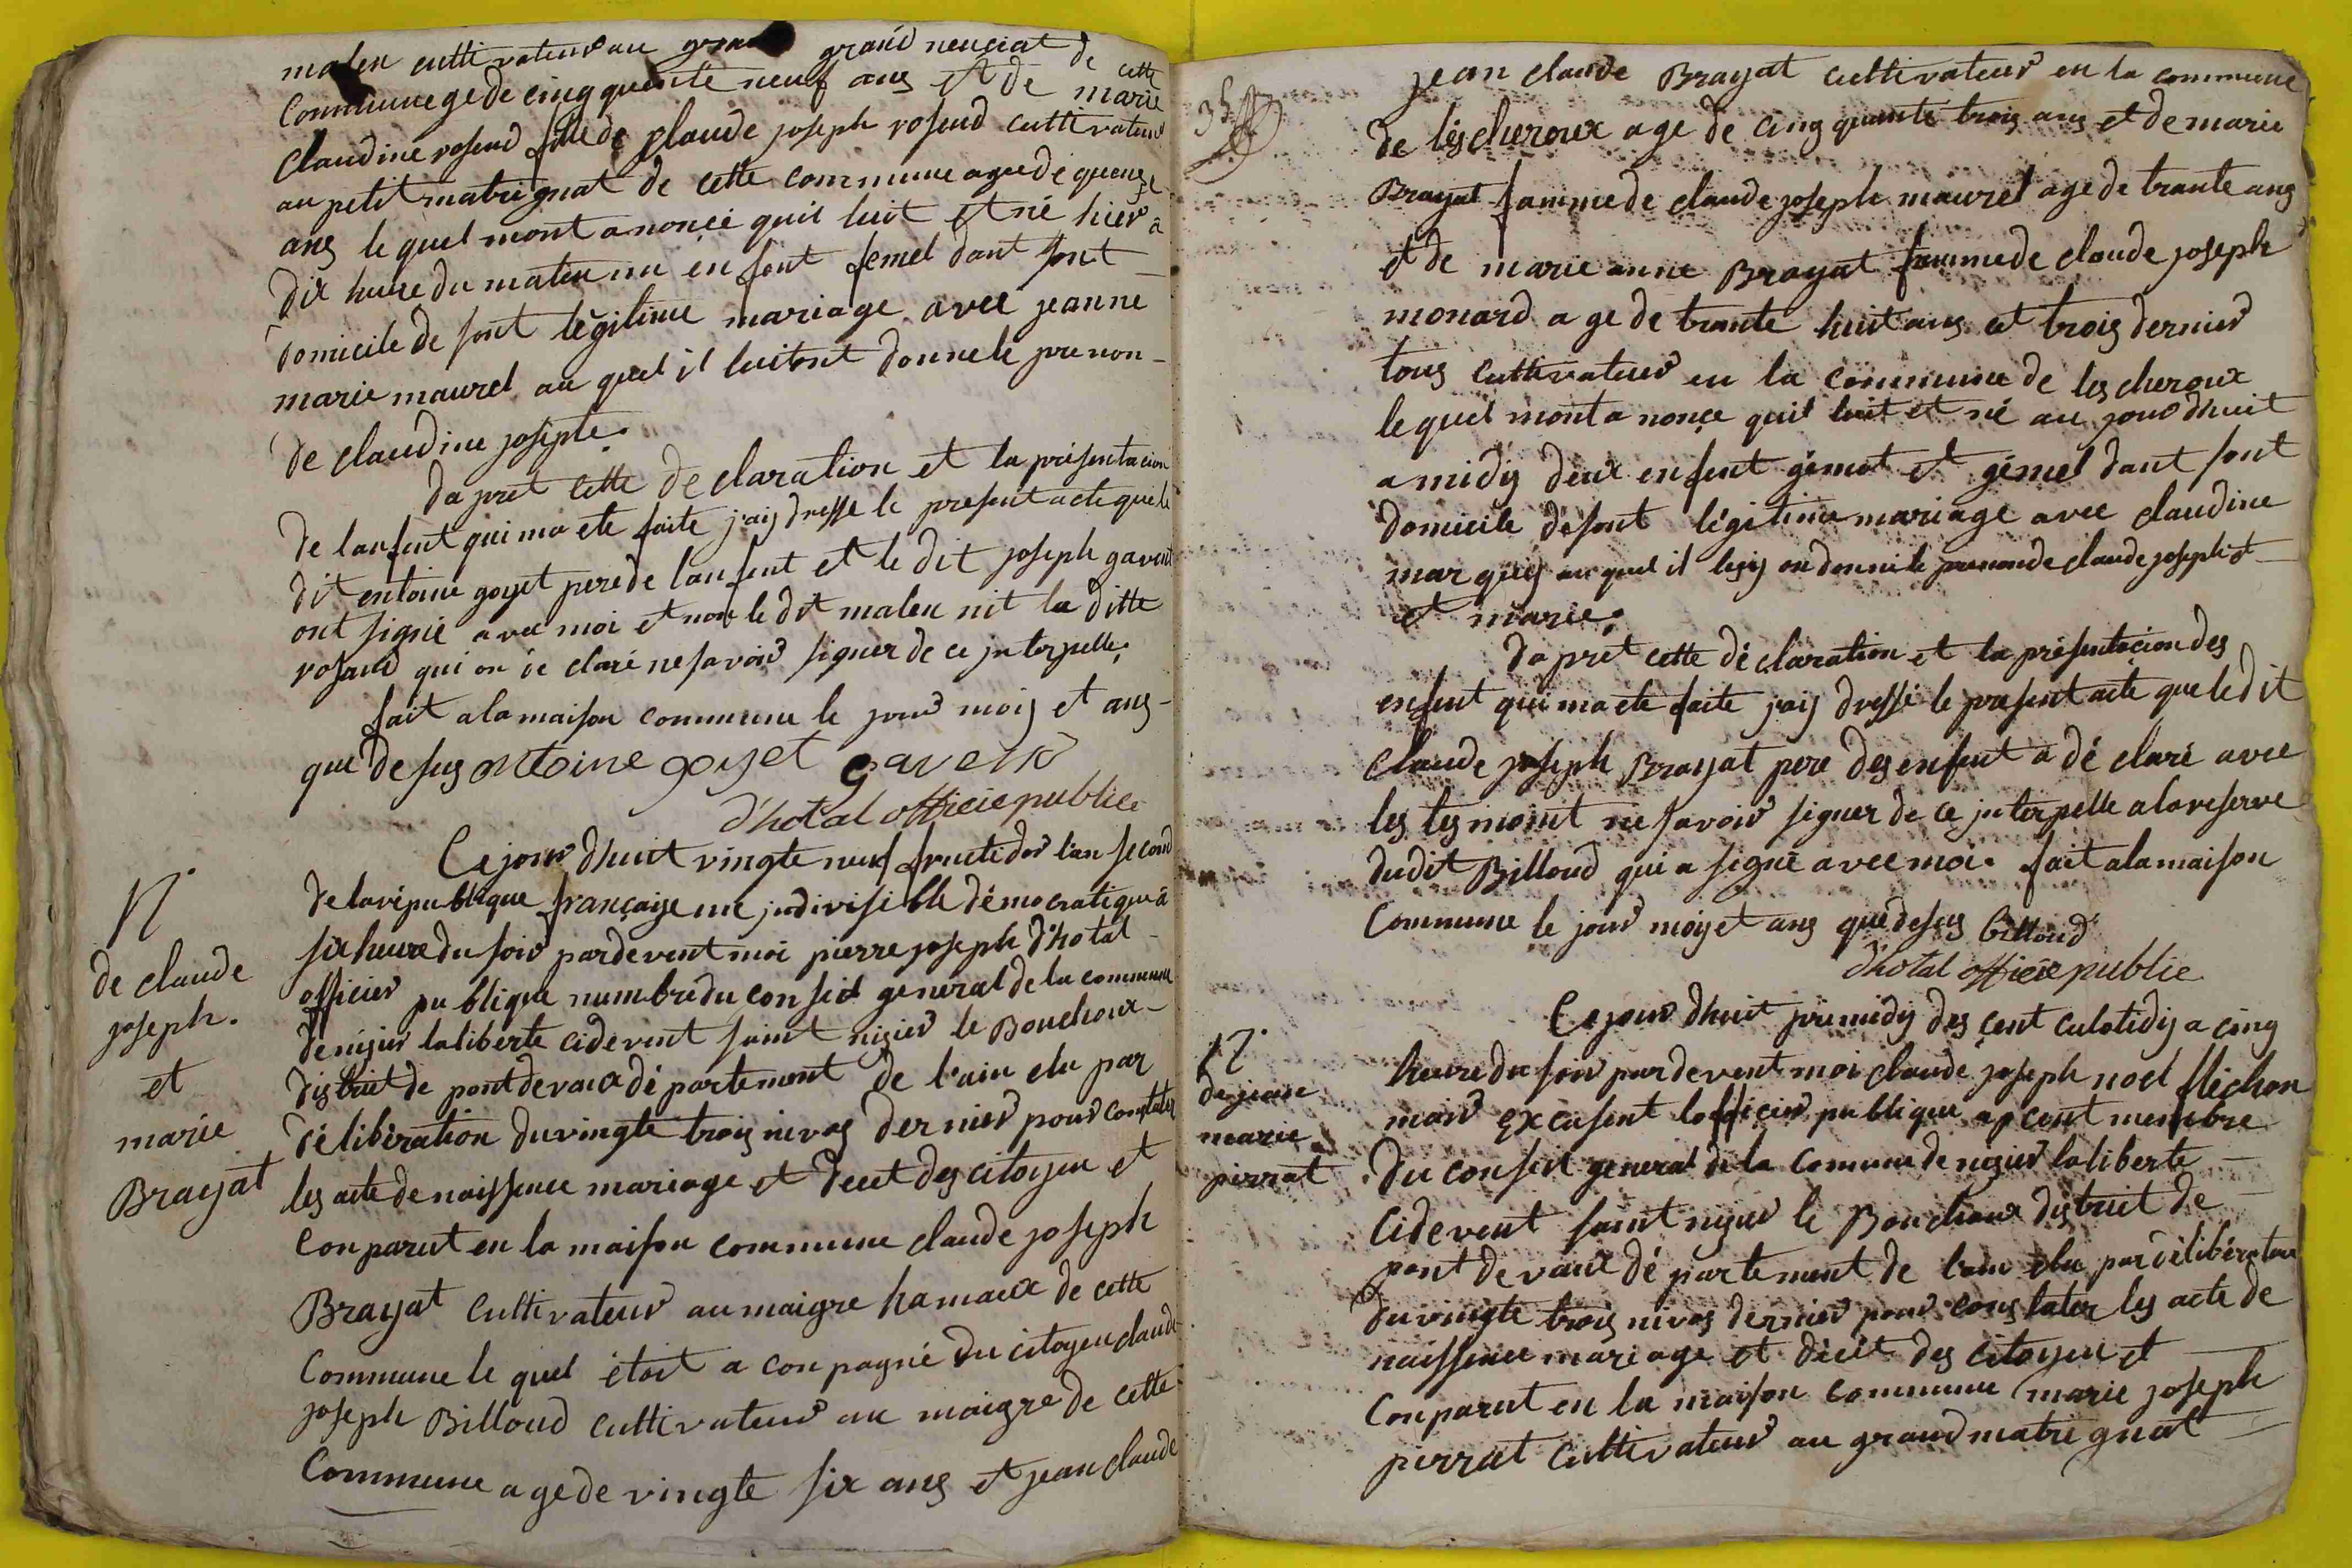 malen cultivateur au grand neuciat de cette
Commune age de cinq quente neuf ans et de marie
claudine rosend fille de claude joseph rosend cultivateur
au petit matrignat de cette commune agee de quenze
ans le quel mont anonçé quil luit et né hier à
dix heure du maten un enfent femel dant sont
domicile de sont lègitime mariage avec jeanne
marie maurel au quel il luitont donne le prenon
de claudine josepte.
da pret cette de claration et la présentacion
de lanfent qui ma ete faite jaij dresse le present acte que le
dit entoine goyet pere de lanfent et le dit joseph gavend
ont signé avec moi et non le dit malen nit la ditte
rosand qui on dé claré ne savoir signer de ce jnterpelle.
fait ala maison commune le jour mois et ans
que de sus antoine goyet gavend
d'hotal officie public
N.
de claude
joseph.
et
marie
Brayat
Ce jour dhuit vingte neuf fructidor l'an second
de la république française une jndivisible démocratique à
six heure du soir pardevent moi pierre joseph d'hotal
officier publique numbre du conseil géneral de la commune
de nisier la liberte cidevent saint nisier le Bouchoux
district de pont de vaux dé partement de l'ain elu par
délibération du vingte trois nivos dernier pour constater
les acte de naissence mariage et decet des citoyen et
Conparut en la maison commune claude joseph
Brayat cultivateur au maigre hamaux de cette
Commune le quel étoit a conpagné du citoyen claude
joseph Billoud cultivateur au maigre de cette
Commune age de vingte six ans et jean claude
jean claude Brayat cultivateur en la commune
de lescheroux age de cinq quante trois ans et de marie
Brayat famme de claude joseph maurel age de trante ans
et de marie anne Brayat famme de claude joseph
monard age de trante huit ans et trois dernier
tous cultivateur en la commune de lescheroux
le quel mont a nonçe quil luit et né au jour dhuit
a midij deux enfent gémot et gémel dant sont
domicile de sont légitime mariage avec claudine
marquis au quel il luij on donné le prenon de claude joseph et
et marie.
da pret cette dé claration et la présentacion des
enfent qui ma ete faite jaij dressé le present acte que le dit
Claude joseph Brayat pere des enfent a dé claré avec
les tesmoint ne savoir signer de ce jnterpelle a la reserve
dudit Billoud qui a signé avec moi. fait ala maison
Commune le jour mois et ans que desus billoud
d'hotal officie public
N.
de jeane
marie
pirrat
Ce jour dhuit primidij des cent culotidij a cinq
heure du soir pardevent moi claude joseph noel fléchon
mair excusent lofficier publique apcent membre
du conseil general de la commune de nisier la liberte
cidevent saint nisier le Bouchoux district de
pont de vaux dé partement de l'ain elu par délibération
du vingte trois nivos dernier pour constater les acte de
naissence mariage et décet des citoyen et
Conparut en la maison commune marie joseph
pirrat cultivateur au grand matrignat